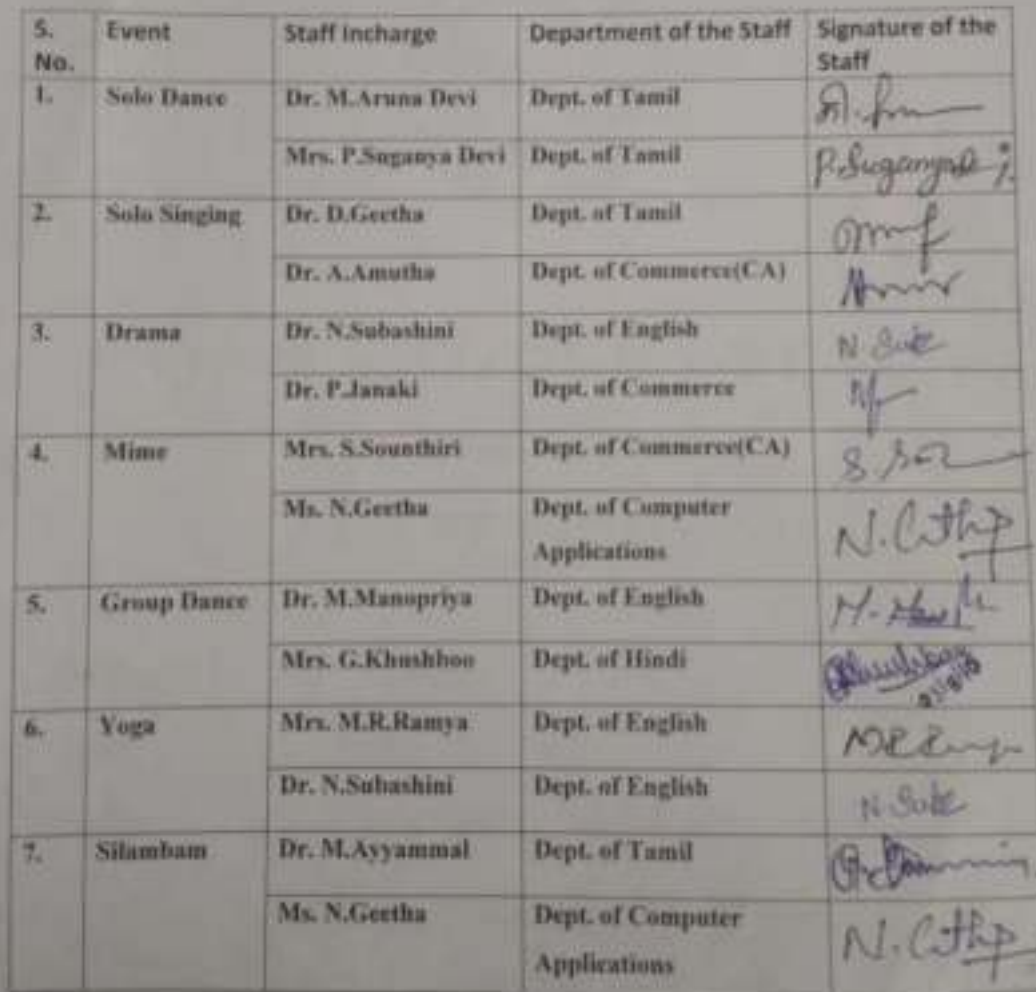 S. No. Event Staff Incharge Department of the Staff Signature of the Staff
1. Solo Dance Dr. M.Aruna Devi Dept. of Tamil
Mrs. P.Suganya Devi Dept. of Tamil P.Suganya
2. Solo Singing Dr. D.Geetha Dept. of Tamil
Dr. A.Amutha Dept. of Commerce(CA)
3. Drama Dr. N.Subashini Dept. of English N.
Dr. P.Janaki Dept. of Commerce
4. Mime Mrs. S.Sounthiri Dept. of Commerce(CA) S.
Ms. N.Geetha Dept. of Computer Applications N.
5. Group Dance Dr. M.Manopriya Dept. of English M.
Mrs. G.Khushboo Dept. of Hindi
6. Yoga Mrs. M.R.Ramya Dept. of English
Dr. N.Subashini Dept. of English N.
7. Silambam Dr. M.Ayyammal Dept. of Tamil
Ms. N.Geetha Dept. of Computer Applications N.